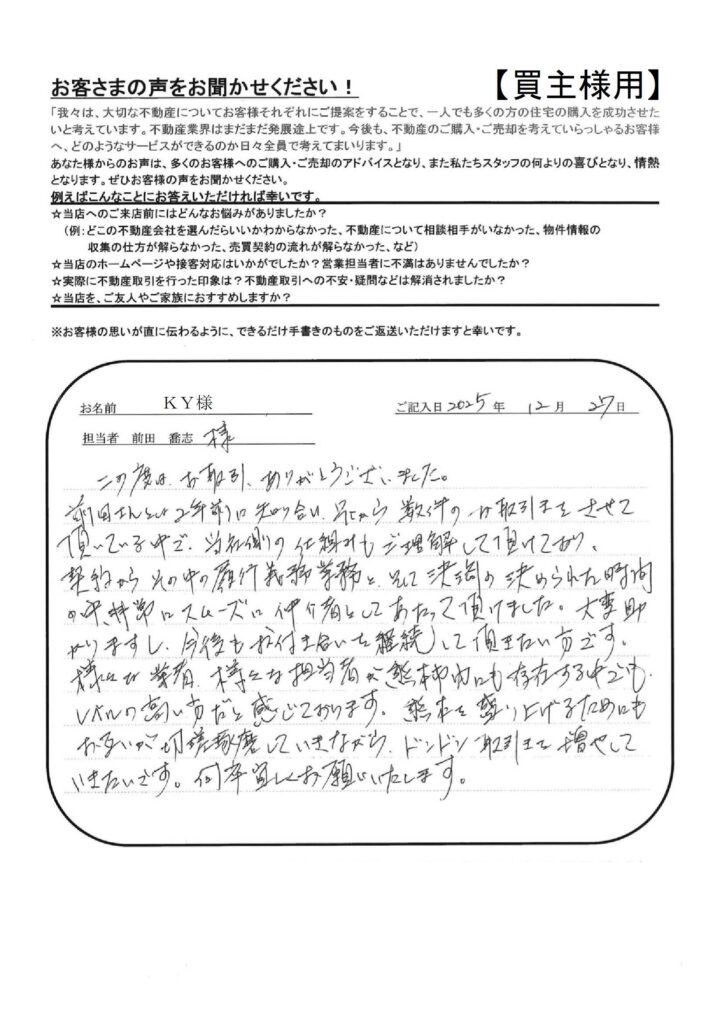 お客さまの声をお聞かせください！
【買主様用】
「我々は、大切な不動産についてお客様それぞれにご提案をすることで、一人でも多くの方の住宅の購入を成功させた
いと考えています。不動産業界はまだまだ発展途上です。今後も、不動産のご購入・ご売却を考えていらっしゃるお客様
へ、どのようなサービスができるのか日々全員で考えてまいります。」
あなた様からのお声は、多くのお客様へのご購入・ご売却のアドバイスとなり、また私たちスタッフの何よりの喜びとなり、情熱
となります。ぜひお客様の声をお聞かせください。
例えばこんなことにお答えいただければ幸いです。
☆当店へのご来店前にはどんなお悩みがありましたか？
（例：どこの不動産会社を選んだらいいかわからなかった、不動産について相談相手がいなかった、物件情報の
収集の仕方が解らなかった、売買契約の流れが解らなかった、など）
☆当店のホームページや接客対応はいかがでしたか？営業担当者に不満はありませんでしたか？
☆実際に不動産取引を行った印象は？不動産取引への不安・疑問などは解消されましたか？
☆当店を、ご友人やご家族におすすめしますか？
※お客様の思いが直に伝わるように、できるだけ手書きのものをご返送いただけますと幸いです。
お名前 KY様
ご記入日 2025年 12月 27日
担当者 前田 喬志 様
この度は、お取引、ありがとうございました。
前田さんとは2年前に知り合い、それから数件のお取引をさせて
頂いている中で、当社側の仕組みもご理解して頂けており、
契約からその中の履行義務業務と、そして決済の決められた時間
の中、非常にスムーズに仲介者としてあたって頂けました。大変助
かりますし、今後もお付き合いを継続して頂きたい方です。
様々な業者、様々な担当者が熊本市内にも存在する中でも、
レベルの高い方だと感じております。熊本を盛り上げるためにも
お互いが切磋琢磨していきながら、ドンドン取引を増やして
いきたいです。何卒宜しくお願いいたします。